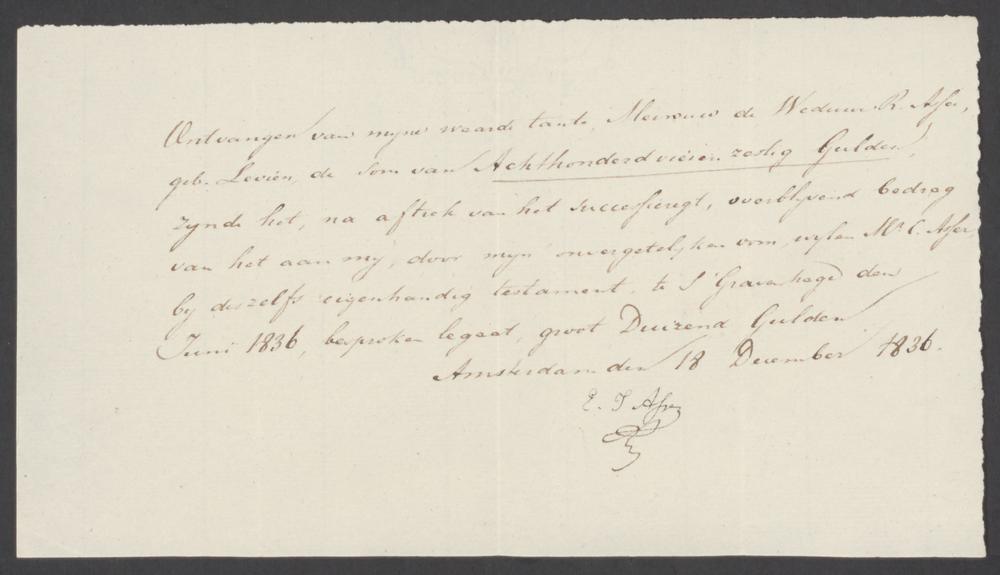 Ontvangen van mijne waarde tante, Mevrouw de Weduwe R. Asser,
geb. Levien, de som van Achthonderd vier en zestig Gulden,
zynde het, na aftrek van het successieregt, overblyvend bedrag
van het aan my, door myn onvergetelyken oom, wylen Mr. C. Asser,
by deszelfs eigenhandig testament, te S' Gravenhage den
Juni 1836, besproken legaat, groot Duizend Gulden.
Amsterdam den 18 December 1836.
E. J Asser